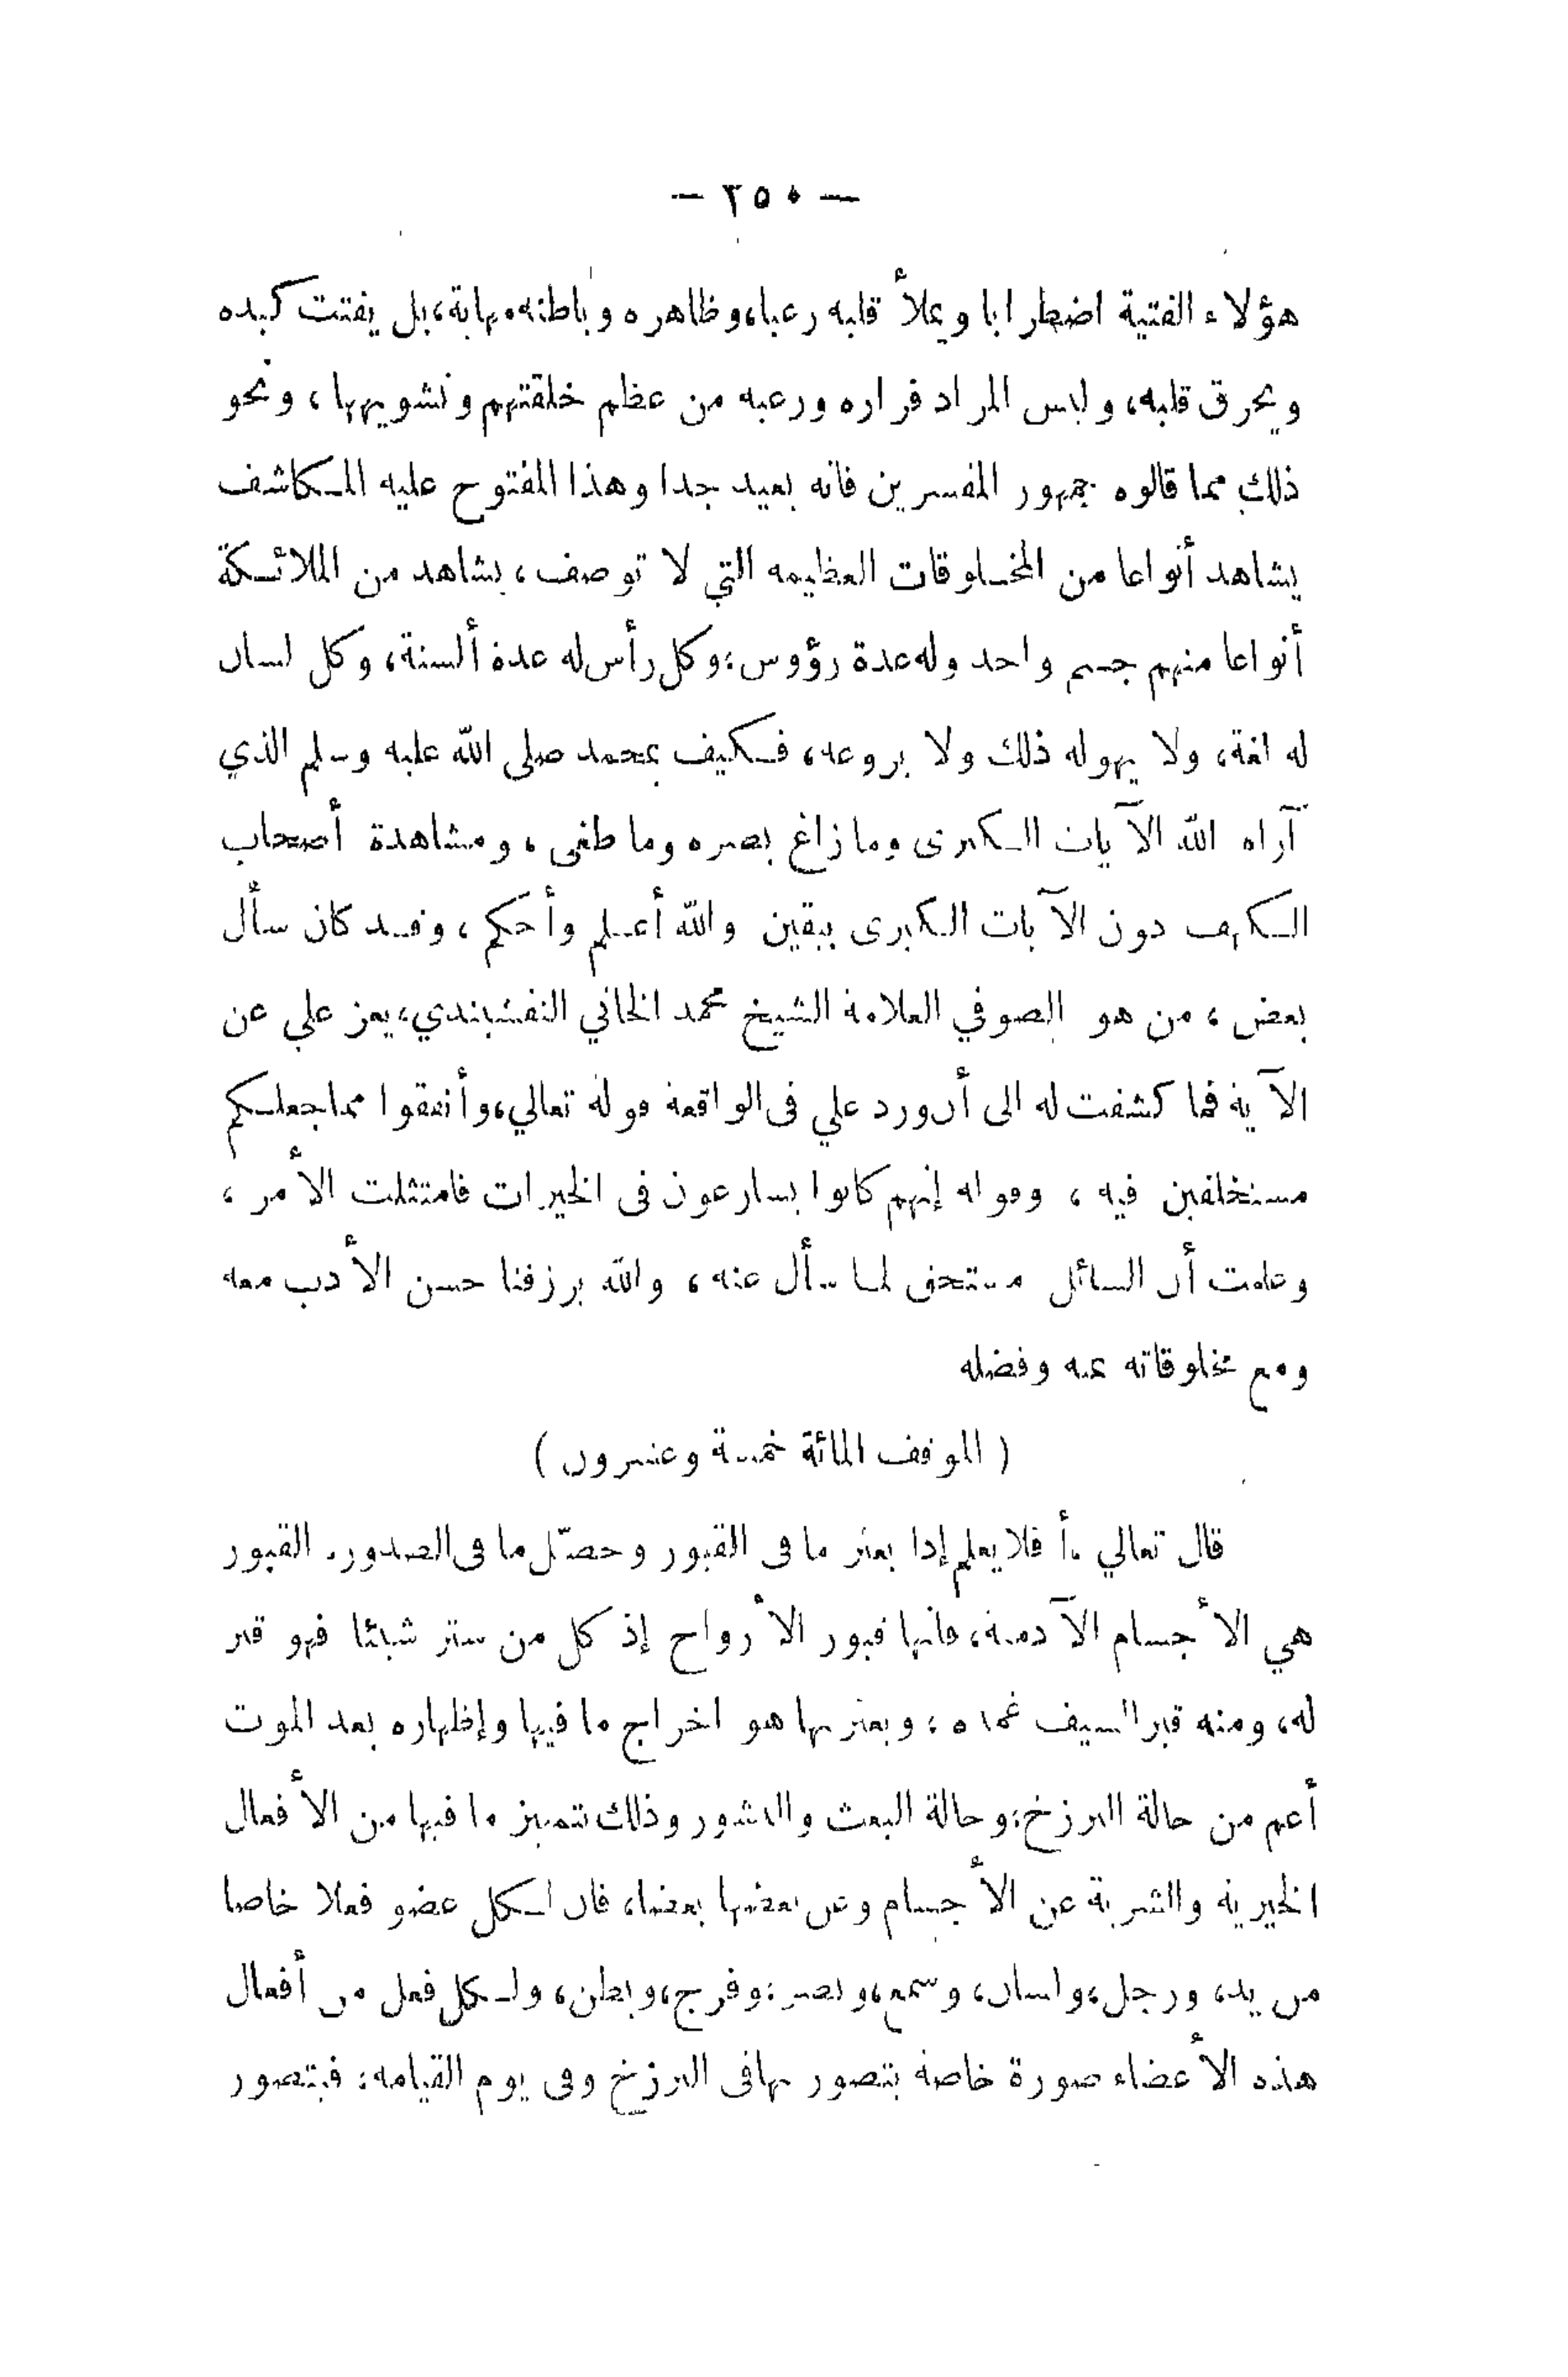 — ٢٥٠ —
هؤلاء الفتية اضطرابا ويملأ قلبه رعبا، وظاهره وباطنه مهابة، بل يفتت كبده
ويحرق قلبه، وليس المراد فراره ورعبه من عظم خلقتهم وتشويهها، ونحو
ذلك مما قالوه جمهور المفسرين فانه بعيد جدا وهذا المفتوح عليه المكاشف
يشاهد أنواعا من المخلوقات العظيمه التي لا توصف، يشاهد من الملائكة
أنواعا منهم جسم واحد وله عدة رؤوس؛ وكل رأس له عدة ألسنة، وكل لسان
له لغة، ولا يهوله ذلك ولا يروعه، فكيف بمحمد صلى الله عليه وسلم الذي
آراه الله الآيات الكبرى وما زاغ بصره وما طغى، ومشاهدة أصحاب
الكهف دون الآيات الكبرى بيقين والله أعلم وأحكم، وقد كان سأل
بعض، من هو الصوفي العلامة الشيخ محمد الخاني النقشبندي، يعز علي عن
الآية فما كشفت له الى أن ورد علي فى الواقعة قوله تعالي، وأنفقوا مما جعلكم
مستخلفين فيه، وقوله إنهم كانوا يسارعون فى الخيرات فامتثلت الأمر،
وعلمت أن السائل مستحق لما سأل عنه، والله يرزقنا حسن الأدب معه
ومع مخلوقاته بمنه وفضله
( الموقف المائة خمسة وعشرون )
قال تعالي ، أفلا يعلم إذا بعثر ما فى القبور وحصّل ما فى الصدور . القبور
هي الأجسام الآدمية، فانها قبور الأرواح إذ كل من ستر شيئا فهو قبر
له، ومنه قبر السيف غمده؛ وبعثرتها هو اخراج ما فيها وإظهاره بعد الموت
أعم من حالة البرزخ؛ وحالة البعث والنشور وذلك تتميز ما فيها من الأفعال
الخيرية والشرية عن الأجسام وعن بعضها بعضا، فان لكل عضو فعلا خاصا
من يد، ورجل، ولسان، وسمع، وبصر؛ وفرج، وبطن، ولكل فعل من أفعال
هذه الأعضاء صورة خاصة يتصور بها فى البرزخ وفى يوم القيامه؛ فيتصور